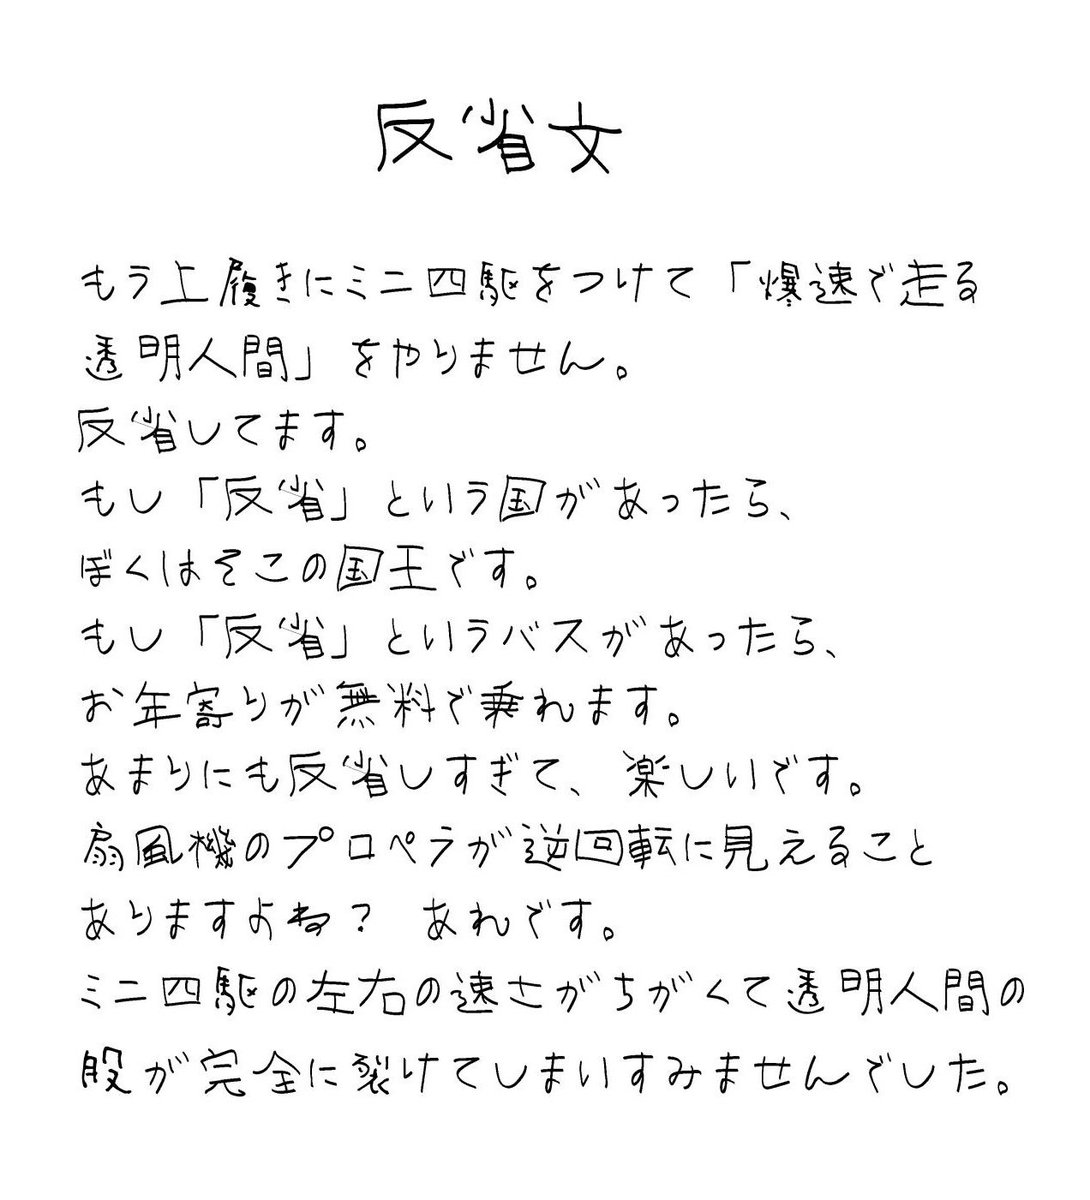 反省文
もう上履きにミニ四駆をつけて「爆速で走る
透明人間」をやりません。
反省してます。
もし「反省」という国があったら、
ぼくはそこの国王です。
もし「反省」というバスがあったら、
お年寄りが無料で乗れます。
あまりにも反省しすぎて、楽しいです。
扇風機のプロペラが逆回転に見えること
ありますよね？　あれです。
ミニ四駆の左右の速さがちがくて透明人間の
股が完全に裂けてしまいすみませんでした。